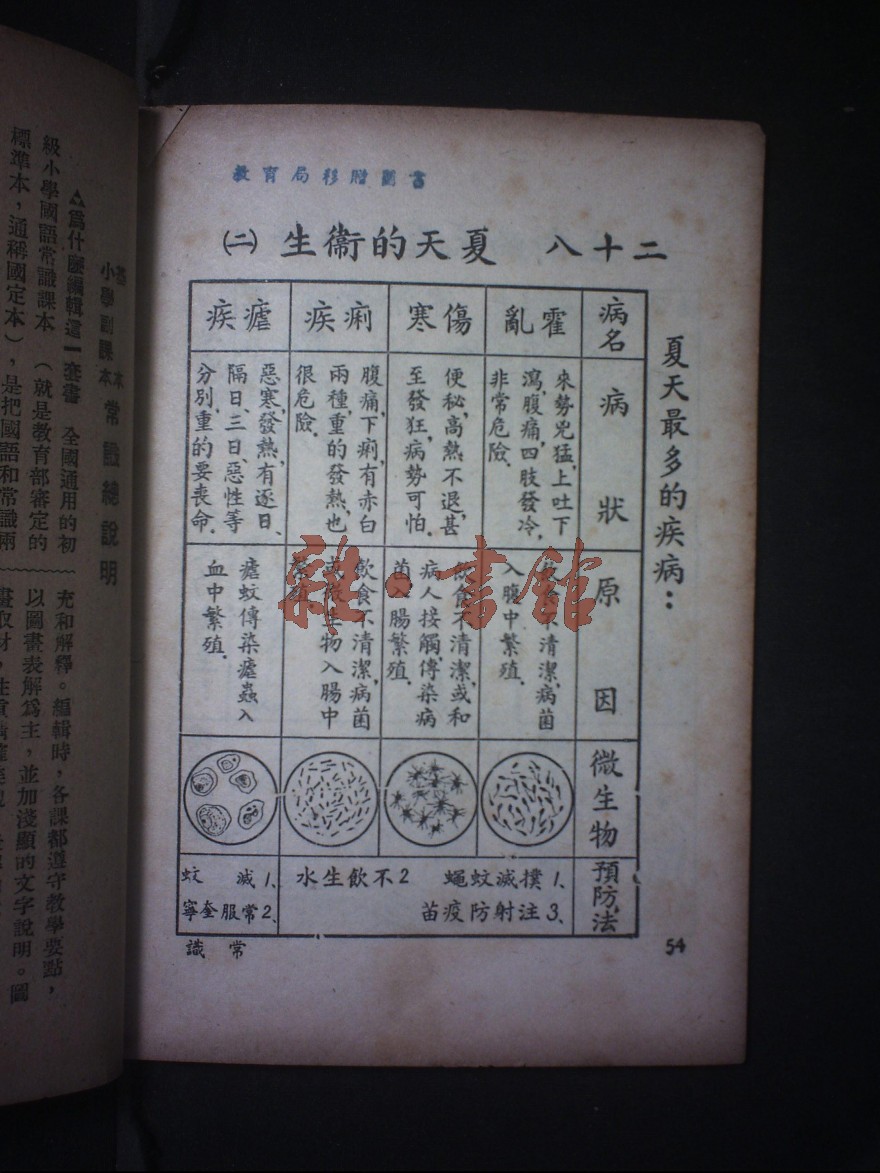 教育局移贈圖書
二十八 夏天的衞生 ㈡
夏天最多的疾病：
病名
病狀
原因
微生物
預防法
霍亂
來勢兇猛,上吐下
瀉,腹痛,四肢發冷,
非常危險.
不清潔,病菌
入腹中繁殖.
傷寒
便秘,高熱不退,甚
至發狂,病勢可怕.
飲食不清潔,或和
病人接觸,傳染病
菌入腸繁殖.
痢疾
腹痛,下痢,有赤白
兩種,重的發熱,也
很危險.
飲食不清潔,病菌
或微生物入腸中
殖.
瘧疾
惡寒,發熱,有逐日、
隔日、三日、惡性等
分別,重的要喪命.
瘧蚊傳染瘧蟲入
血中繁殖.
1、撲滅蚊蠅 2不飲生水
3、注射防疫苗
1、滅蚊
2、常服奎寧
常識
54
雜·書館
本
小學副課本常識總說明
為什麼編輯這一套書 全國通用的初
級小學國語常識課本 （就是教育部審定的
標準本，通稱國定本），是把國語和常識兩
充和解釋。編輯時，各課都遵守教學要點，
以圖畫表解爲主，並加淺顯的文字說明。圖